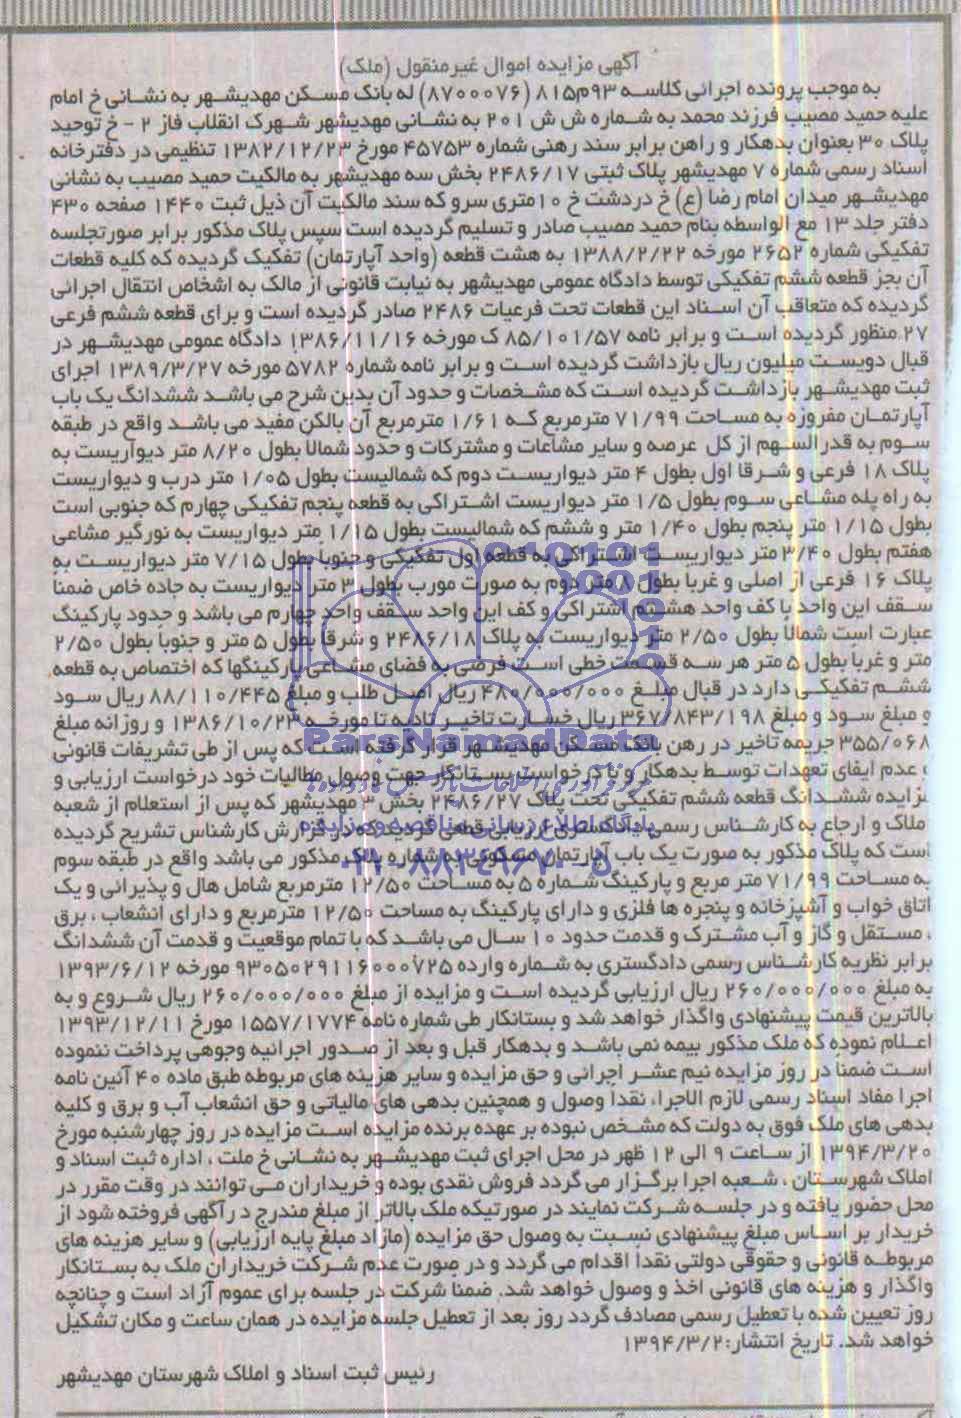 آگهی مزایده اموال غیرمنقول (ملک)
به موجب پرونده اجرائی کلاسه ۹۳م۸۱۵ (۸۷۰۰۰۷۶) له بانک مسکن مهدیشهر به نشانی خ امام
علیه حمید مصیب فرزند محمد به شماره ش ش ۲۰۱ به نشانی مهدیشهر شهرک انقلاب فاز ۲ - خ توحید
پلاک ۳۰ بعنوان بدهکار و راهن برابر سند رهنی شماره ۴۵۷۵۳ مورخ ۱۳۸۲/۱۲/۲۳ تنظیمی در دفترخانه
اسناد رسمی شماره ۷ مهدیشهر پلاک ثبتی ۲۴۸۶/۱۷ بخش سه مهدیشهر به مالکیت حمید مصیب به نشانی
مهدیشهر میدان امام رضا (ع) خ دردشت خ ۱۰متری سرو که سند مالکیت آن ذیل ثبت ۱۴۴۰ صفحه ۴۳۰
دفتر جلد ۱۳ مع الواسطه بنام حمید مصیب صادر و تسلیم گردیده است سپس پلاک مذکور برابر صورتجلسه
تفکیکی شماره ۲۶۵۲ مورخه ۱۳۸۸/۲/۲۲ به هشت قطعه (واحد آپارتمان) تفکیک گردیده که کلیه قطعات
آن بجز قطعه ششم تفکیکی توسط دادگاه عمومی مهدیشهر به نیابت قانونی از مالک به اشخاص انتقال اجرائی
گردیده که متعاقب آن اسناد این قطعات تحت فرعیات ۲۴۸۶ صادر گردیده است و برای قطعه ششم فرعی
۲۷ منظور گردیده است و برابر نامه ۸۵/۱۰۱/۵۷ ک مورخه ۱۳۸۶/۱۱/۱۶ دادگاه عمومی مهدیشهر در
قبال دویست میلیون ریال بازداشت گردیده است و برابر نامه شماره ۵۷۸۲ مورخه ۱۳۸۹/۳/۲۷ اجرای
ثبت مهدیشهر بازداشت گردیده است که مشخصات و حدود آن بدین شرح می باشد ششدانگ یک باب
آپارتمان مفروزه به مساحت ۷۱/۹۹ مترمربع که ۱/۶۱ مترمربع آن بالکن مفید می باشد واقع در طبقه
سوم به قدرالسهم از کل عرصه و سایر مشاعات و مشترکات و حدود شمالا بطول ۸/۲۰ متر دیواریست به
پلاک ۱۸ فرعی و شرقا اول بطول ۴ متر دیواریست دوم که شمالیست بطول ۱/۰۵ متر درب و دیواریست
به راه پله مشاعی سوم بطول ۱/۵ متر دیواریست اشتراکی به قطعه پنجم تفکیکی چهارم که جنوبی است
بطول ۱/۱۵ متر پنجم بطول ۱/۴۰ متر و ششم که شمالیست بطول ۱/۱۵ متر دیواریست به نورگیر مشاعی
هفتم بطول ۳/۴۰ متر دیواریست اشتراکی به قطعه اول تفکیکی و جنوبا بطول ۷/۱۵ متر دیواریست به
پلاک ۱۶ فرعی از اصلی و غربا بطول ۸ متر دوم به صورت مورب بطول ۳ متر دیواریست به جاده خاص ضمنا
سقف این واحد با کف واحد هشتم اشتراکی و کف این واحد سقف واحد چهارم می باشد و حدود پارکینگ
عبارت است شمالا بطول ۲/۵۰ متر دیواریست به پلاک ۲۴۸۶/۱۸ و شرقا بطول ۵ متر و جنوبا بطول ۲/۵۰
متر و غربا بطول ۵ متر هر سه قسمت خطی است فرضی به فضای مشاعی پارکینگها که اختصاص به قطعه
ششم تفکیکی دارد در قبال مبلغ ۴۸۰/۰۰۰/۰۰۰ ریال اصل طلب و مبلغ ۸۸/۱۱۰/۴۴۵ ریال سود
و مبلغ سود و مبلغ ۳۶۷/۸۴۳/۱۹۸ ریال خسارت تاخیر تادیه تا مورخه ۱۳۸۶/۱۰/۲۳ و روزانه مبلغ
۳۵۵/۰۶۸ جریمه تاخیر در رهن بانک مسکن مهدیشهر قرار گرفته است که پس از طی تشریفات قانونی
و عدم ایفای تعهدات توسط بدهکار و با درخواست بستانکار جهت وصول مطالبات خود درخواست ارزیابی و
مزایده ششدانگ قطعه ششم تفکیکی تحت پلاک ۲۴۸۶/۲۷ بخش ۳ مهدیشهر که پس از استعلام از شعبه
املاک و ارجاع به کارشناس رسمی دادگستری ارزیابی قطعی گردید که در گزارش کارشناس تشریح گردیده
است که پلاک مذکور به صورت یک باب آپارتمان مسکونی به شماره پلاک مذکور می باشد واقع در طبقه سوم
به مساحت ۷۱/۹۹ متر مربع و پارکینگ شماره ۵ به مساحت ۱۲/۵۰ مترمربع شامل هال و پذیرائی و یک
اتاق خواب و آشپزخانه و پنجره ها فلزی و دارای پارکینگ به مساحت ۱۲/۵۰ مترمربع و دارای انشعاب ، برق
، مستقل و گاز و آب مشترک و قدمت حدود ۱۰ سال می باشد که با تمام موقعیت و قدمت آن ششدانگ
برابر نظریه کارشناس رسمی دادگستری به شماره وارده ۹۳۰۵۰۲۹۱۱۶۰۰۰۷۲۵ مورخه ۱۳۹۳/۶/۱۲
به مبلغ ۲۶۰/۰۰۰/۰۰۰ ریال ارزیابی گردیده است و مزایده از مبلغ ۲۶۰/۰۰۰/۰۰۰ ریال شروع و به
بالاترین قیمت پیشنهادی واگذار خواهد شد و بستانکار طی شماره نامه ۱۵۵۷/۱۷۷۴ مورخ ۱۳۹۳/۱۲/۱۱
اعلام نموده که ملک مذکور بیمه نمی باشد و بدهکار قبل و بعد از صدور اجرائیه وجوهی پرداخت ننموده
است ضمنا در روز مزایده نیم عشر اجرائی و حق مزایده و سایر هزینه های مربوطه طبق ماده ۴۰ آئین نامه
اجرا مفاد اسناد رسمی لازم الاجراء نقدا وصول و همچنین بدهی های مالیاتی و حق انشعاب آب و برق و کلیه
بدهی های ملک فوق به دولت که مشخص نبوده بر عهده برنده مزایده است مزایده در روز چهارشنبه مورخ
۱۳۹۴/۳/۲۰ از ساعت ۹ الی ۱۲ ظهر در محل اجرای ثبت مهدیشهر به نشانی خ ملت ، اداره ثبت اسناد و
املاک شهرستان ، شعبه اجرا برگزار می گردد فروش نقدی بوده و خریداران می توانند در وقت مقرر در
محل حضور یافته و در جلسه شرکت نمایند در صورتیکه ملک بالاتر از مبلغ مندرج د رآگهی فروخته شود از
خریدار بر اساس مبلغ پیشنهادی نسبت به وصول حق مزایده (مازاد مبلغ پایه ارزیابی) و سایر هزینه های
مربوطه قانونی و حقوقی دولتی نقدا اقدام می گردد و در صورت عدم شرکت خریداران ملک به بستانکار
واگذار و هزینه های قانونی اخذ و وصول خواهد شد. ضمنا شرکت در جلسه برای عموم آزاد است و چنانچه
روز تعیین شده با تعطیل رسمی مصادف گردد روز بعد از تعطیل جلسه مزایده در همان ساعت و مکان تشکیل
خواهد شد. تاریخ انتشار: ۱۳۹۴/۳/۲
رئیس ثبت اسناد و املاک شهرستان مهدیشهر
ParaNamadData
پایگاه اطلاع رسانی مناقصه و مزایده
۰۲۱-۸۸۳۴۹۶۷۰-۵